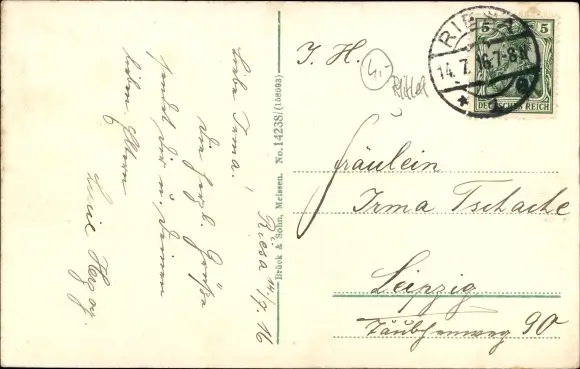 Riesa 14/7. 16
Liebe Irma!
Die herzl. Grüße
sendet dir u. deinen
lieben Eltern
Lucie Herzog.
Brück & Sohn, Meissen. No. 14238/(158093)
J. H.
4,-
RIESA
14. 7. 16. 7-8 N
5 5
DEUTSCHES REICH
Fräulein
Irma Tschache
Leipzig
Täubchenweg 90